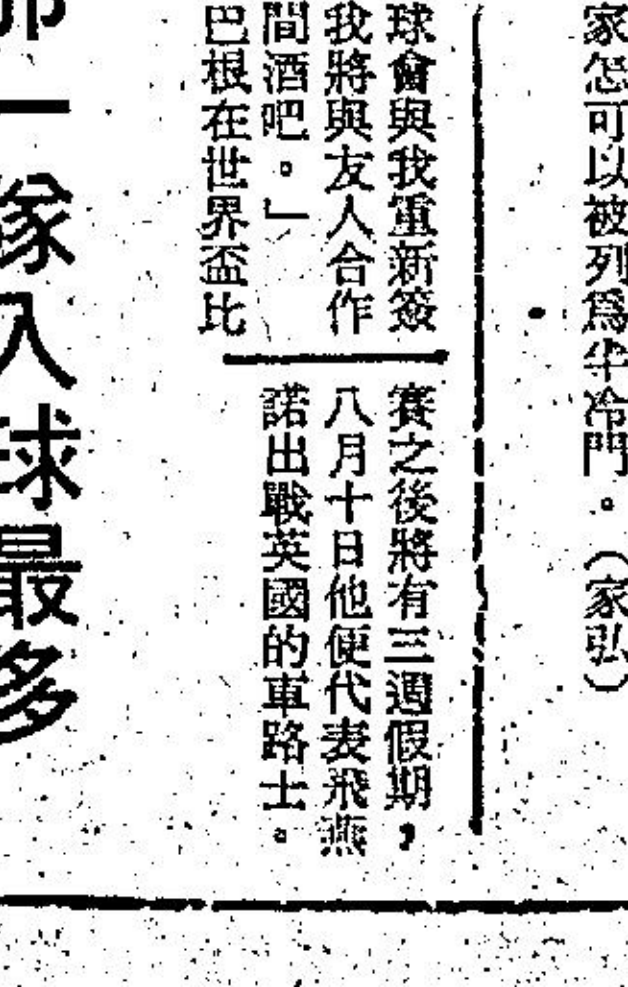 家怎可以被列爲半冷門。(家弘)
球會與我重新簽
我將與友人合作
間酒吧。」
巴根在世界盃比
賽之後將有三週假期，
八月十日他便代表飛燕
諾出戰英國的車路士。
一隊入球最多